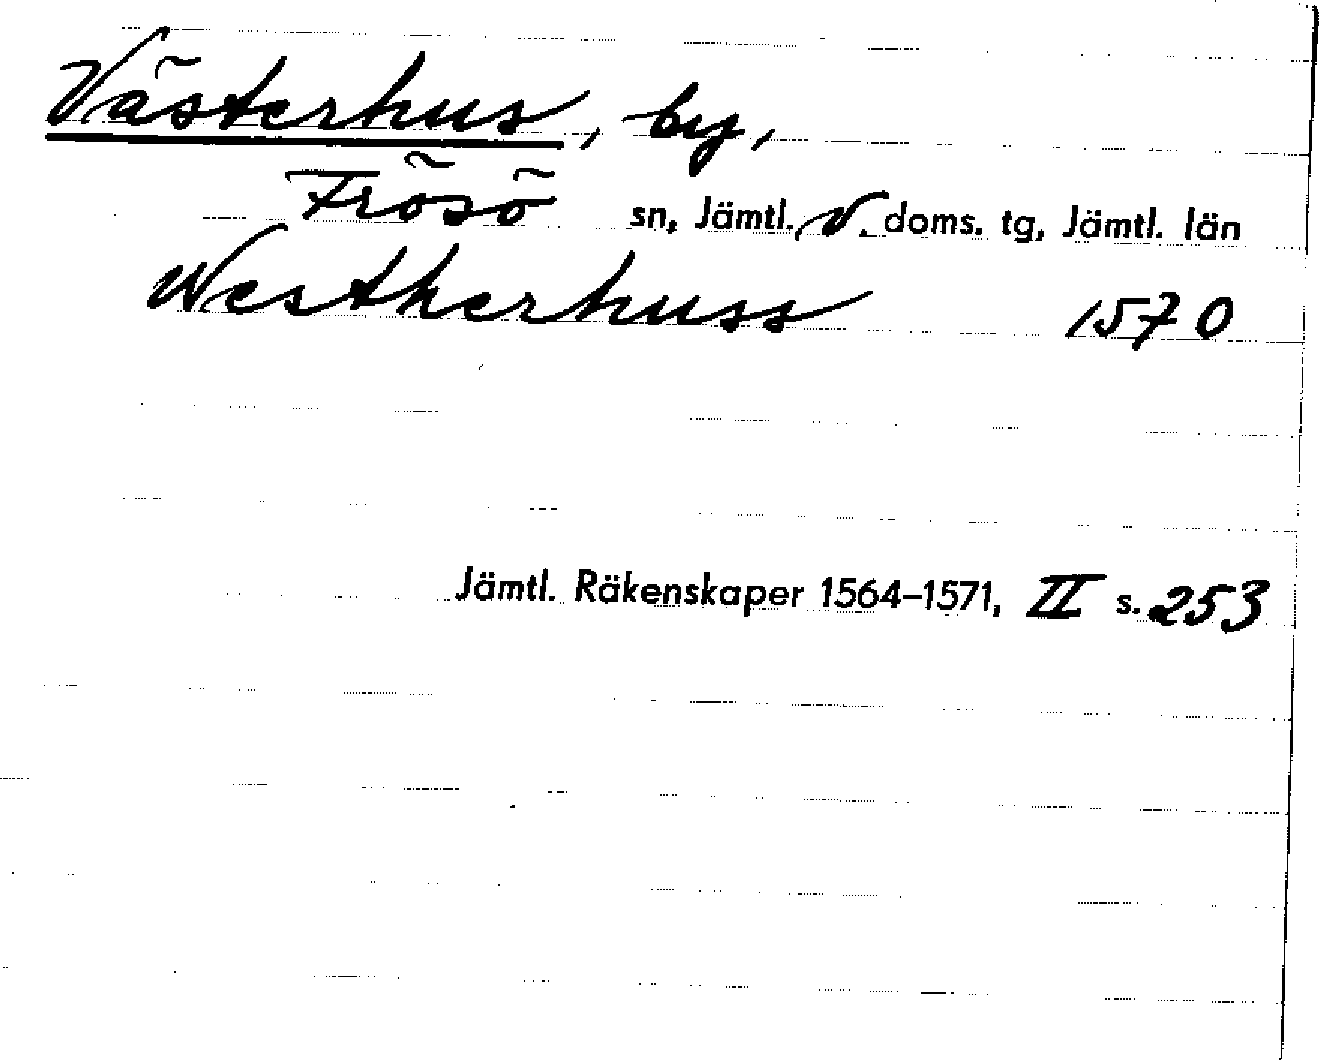 Västerhus, by,
Frösö sn, Jämtl. V. doms. tg, Jämtl. län
Westherhuss 1570
Jämtl. Räkenskaper 1564–1571, II s. 253